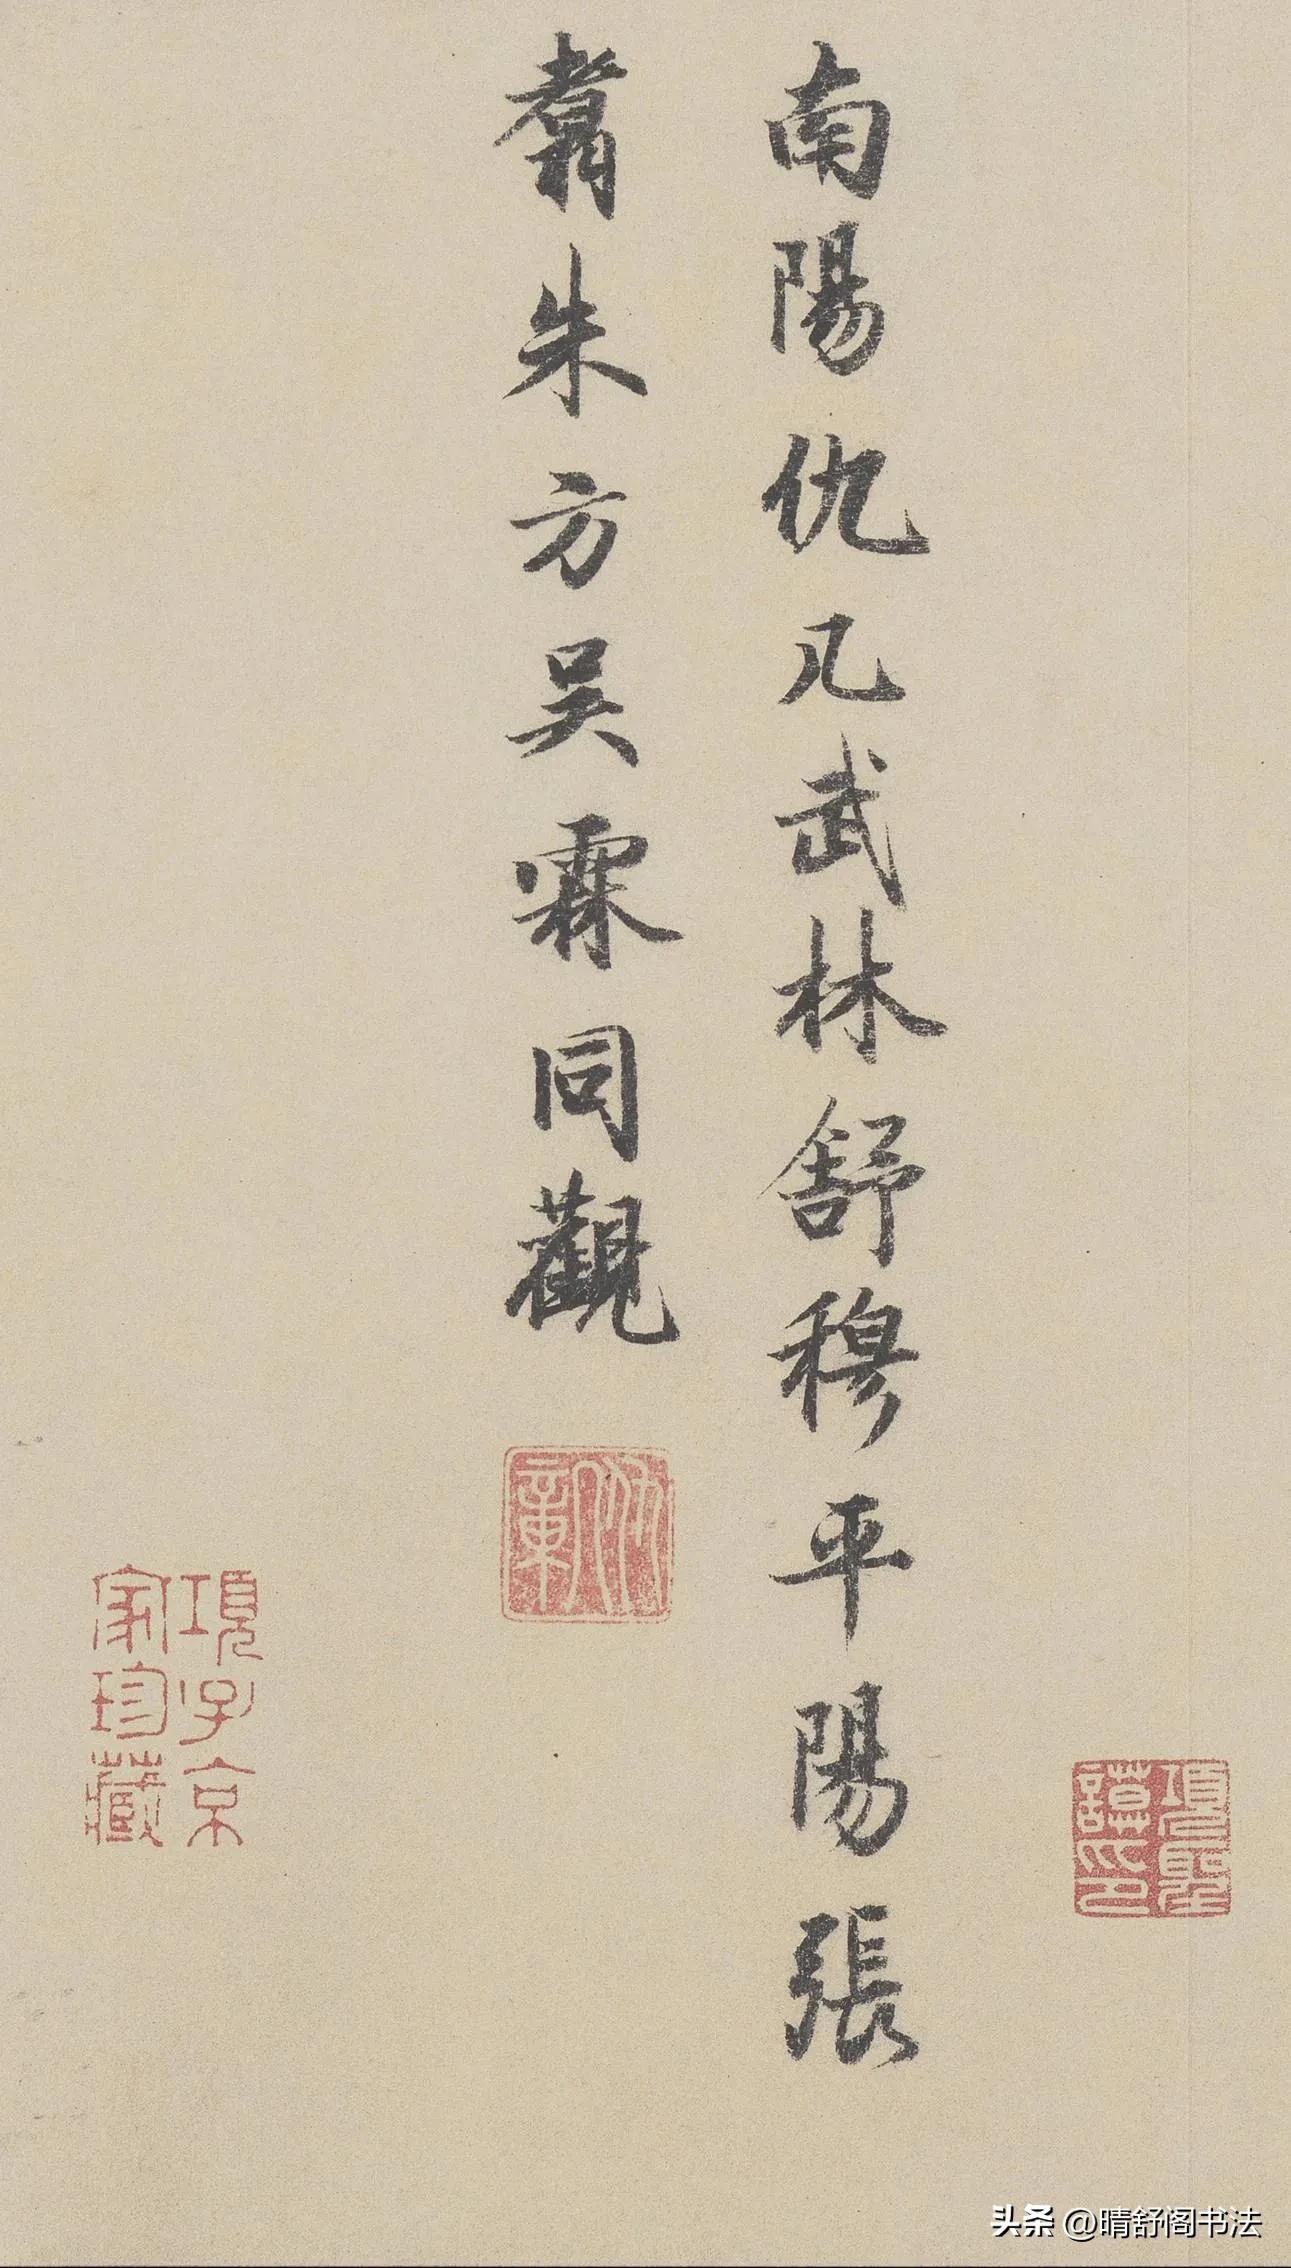 南陽仇几武林舒穆平陽張
翥朱方吳霖同觀
項子京
家珍藏
头条 @晴舒阁书法